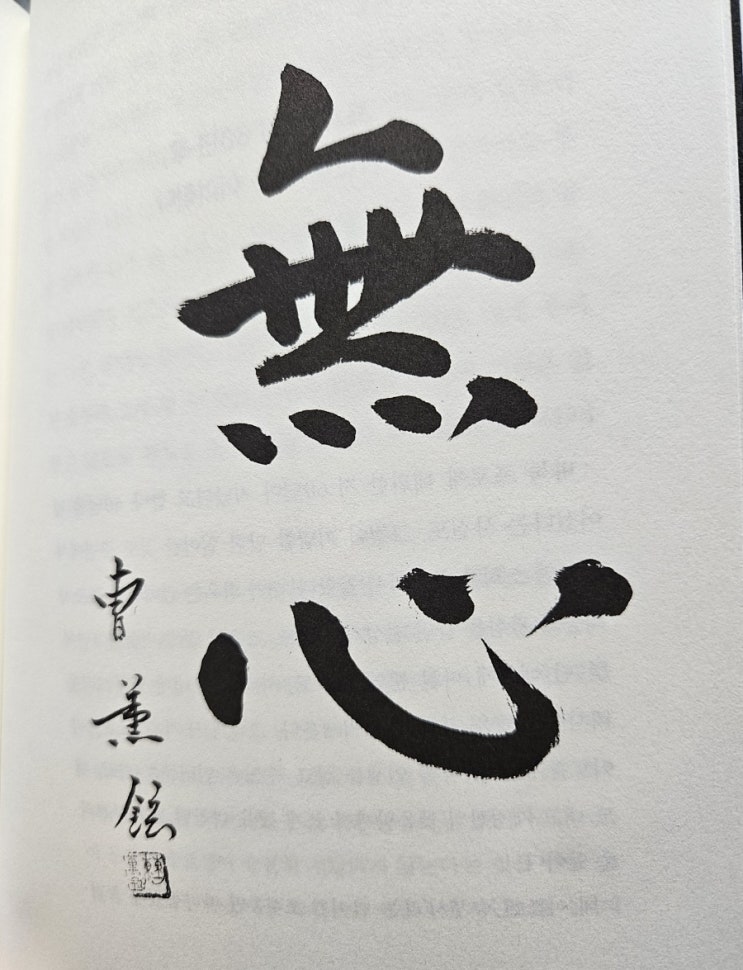 無心
曺薰鉉